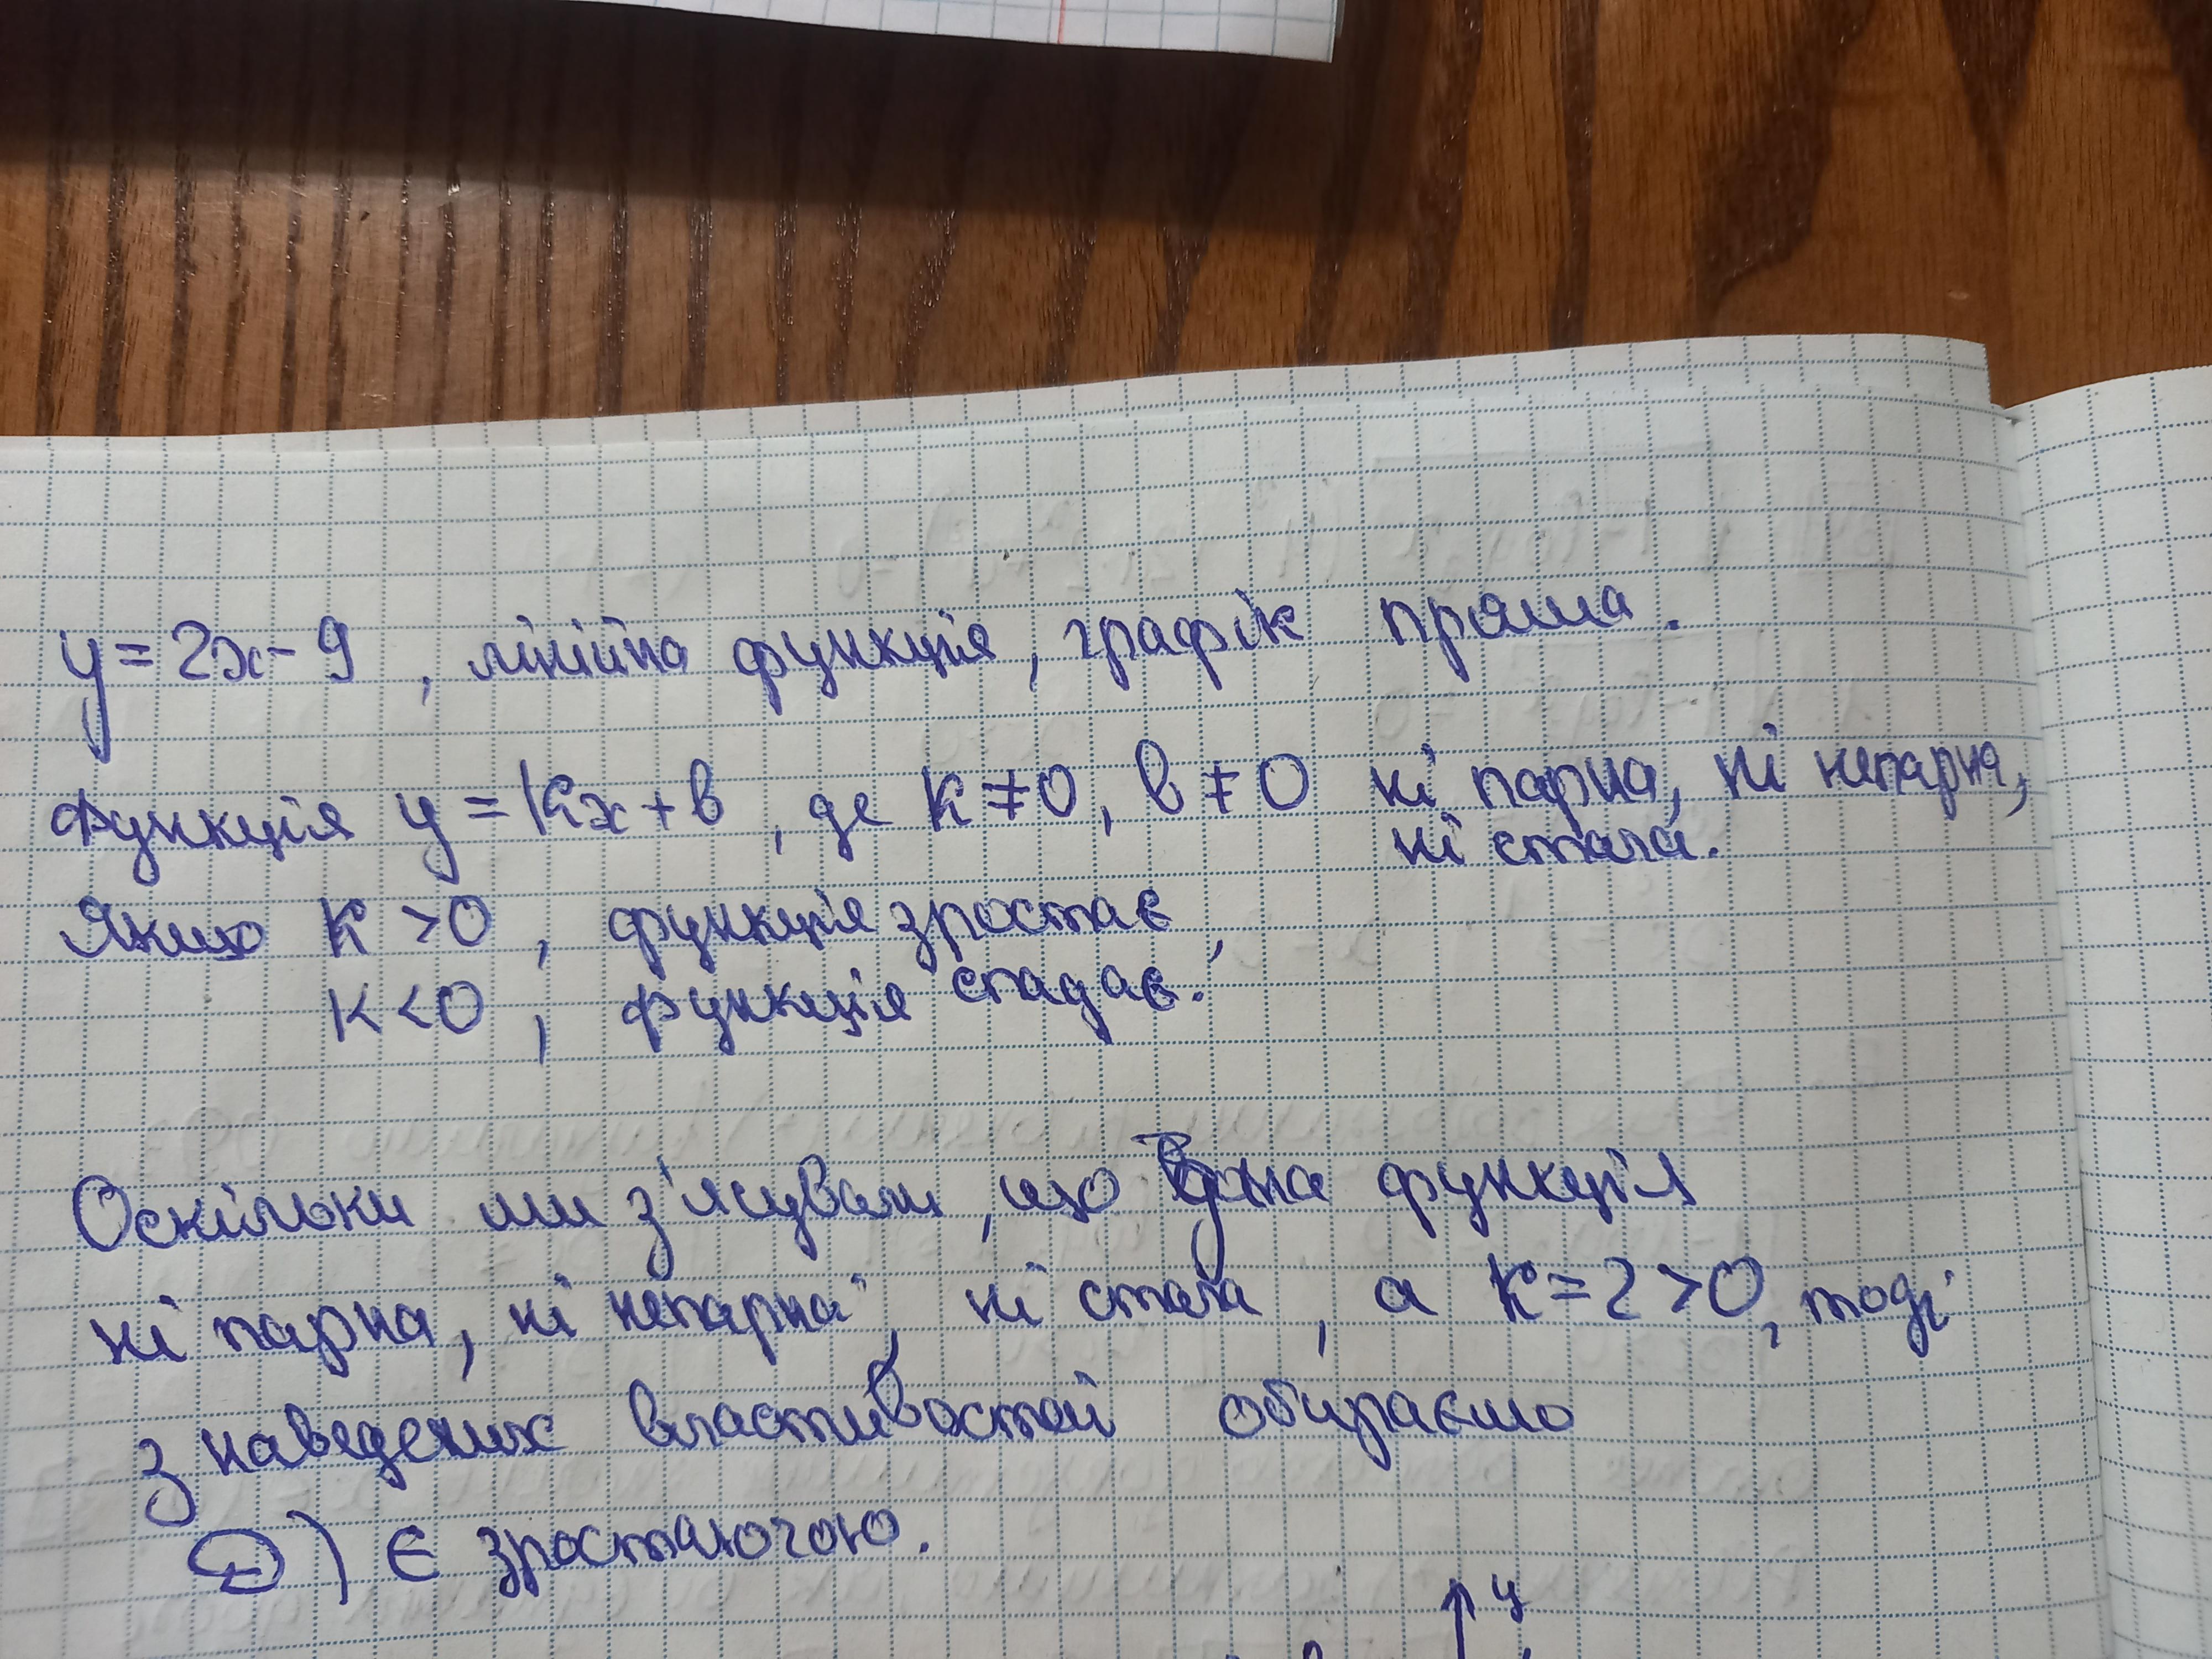 y = 2x - 9 , лінійна функція, графік пряма.
Функція y = kx + b , де k ≠ 0, b ≠ 0 ні парна, ні непарна,
ні стала.
Якщо k > 0 , функція зростає,
k < 0 , функція спадає.
Оскільки ми з'ясували, що дана функція
ні парна, ні непарна, ні стала , а k = 2 > 0, тоді
з наведених властивостей обираємо
Д) є зростаючою.
y